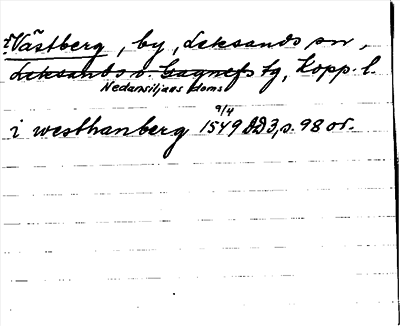 ?Västberg, by, Leksands sn,
Leksands o. Gagnefs tg, Kopp. l.
Nedansiljans doms
9/4
i westhanberg 1549 DD3, s. 98 or.